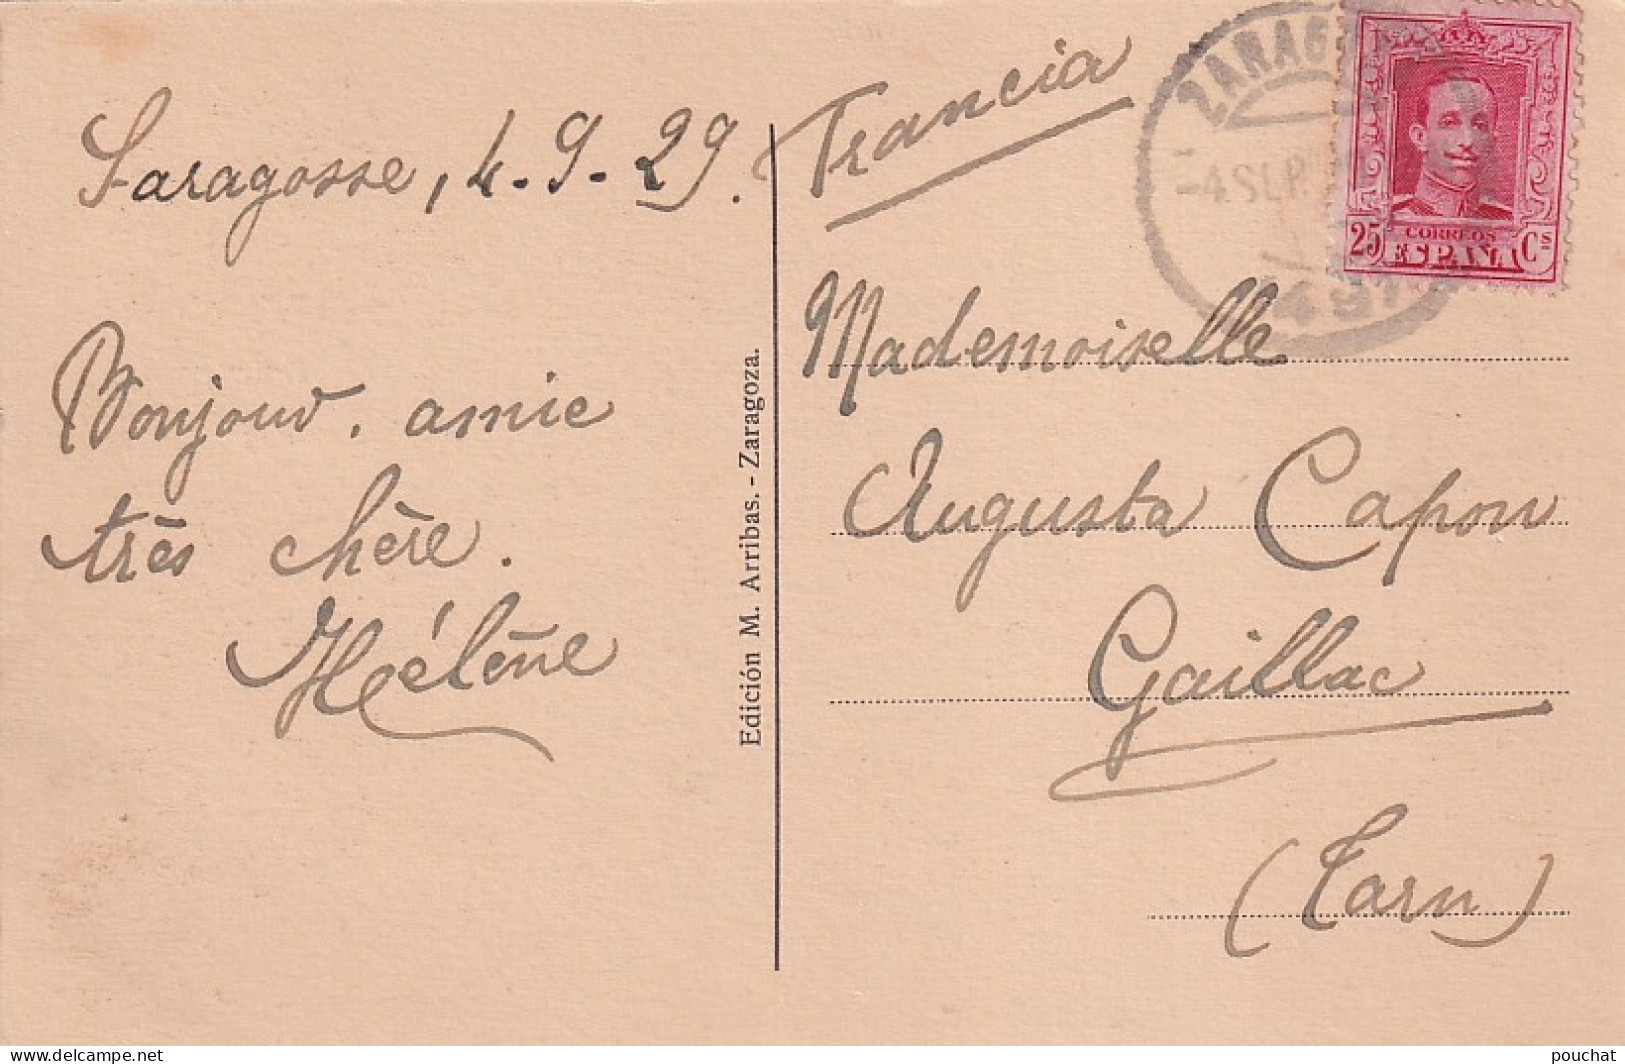 Saragosse, 4.9.29.
Bonjour. amie
très chère.
Hélène
Edición M. Arribas. - Zaragoza.
Francia
-4 SEP.
25 CORREOS Cs
ESPAÑA
Mademoiselle
Augusta Capon
Gaillac
(Tarn)
delcampe.net
pouchat